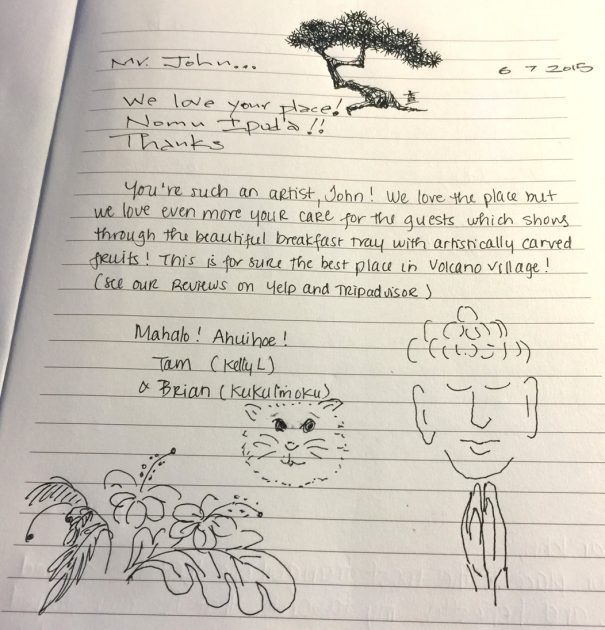 Mr. John...
6 7 2015
We love your place!
Nomu Ipula!!
Thanks
You're such an artist, John! We love the place but
we love even more your care for the guests which shows
through the beautiful breakfast tray with artistically carved
fruits! This is for sure the best place in Volcano Village!
(See our Reviews on Yelp and Tripadvisor)
Mahalo! Ahuihoe!
Tam (Kelly L)
& Brian (Kukuimoku)